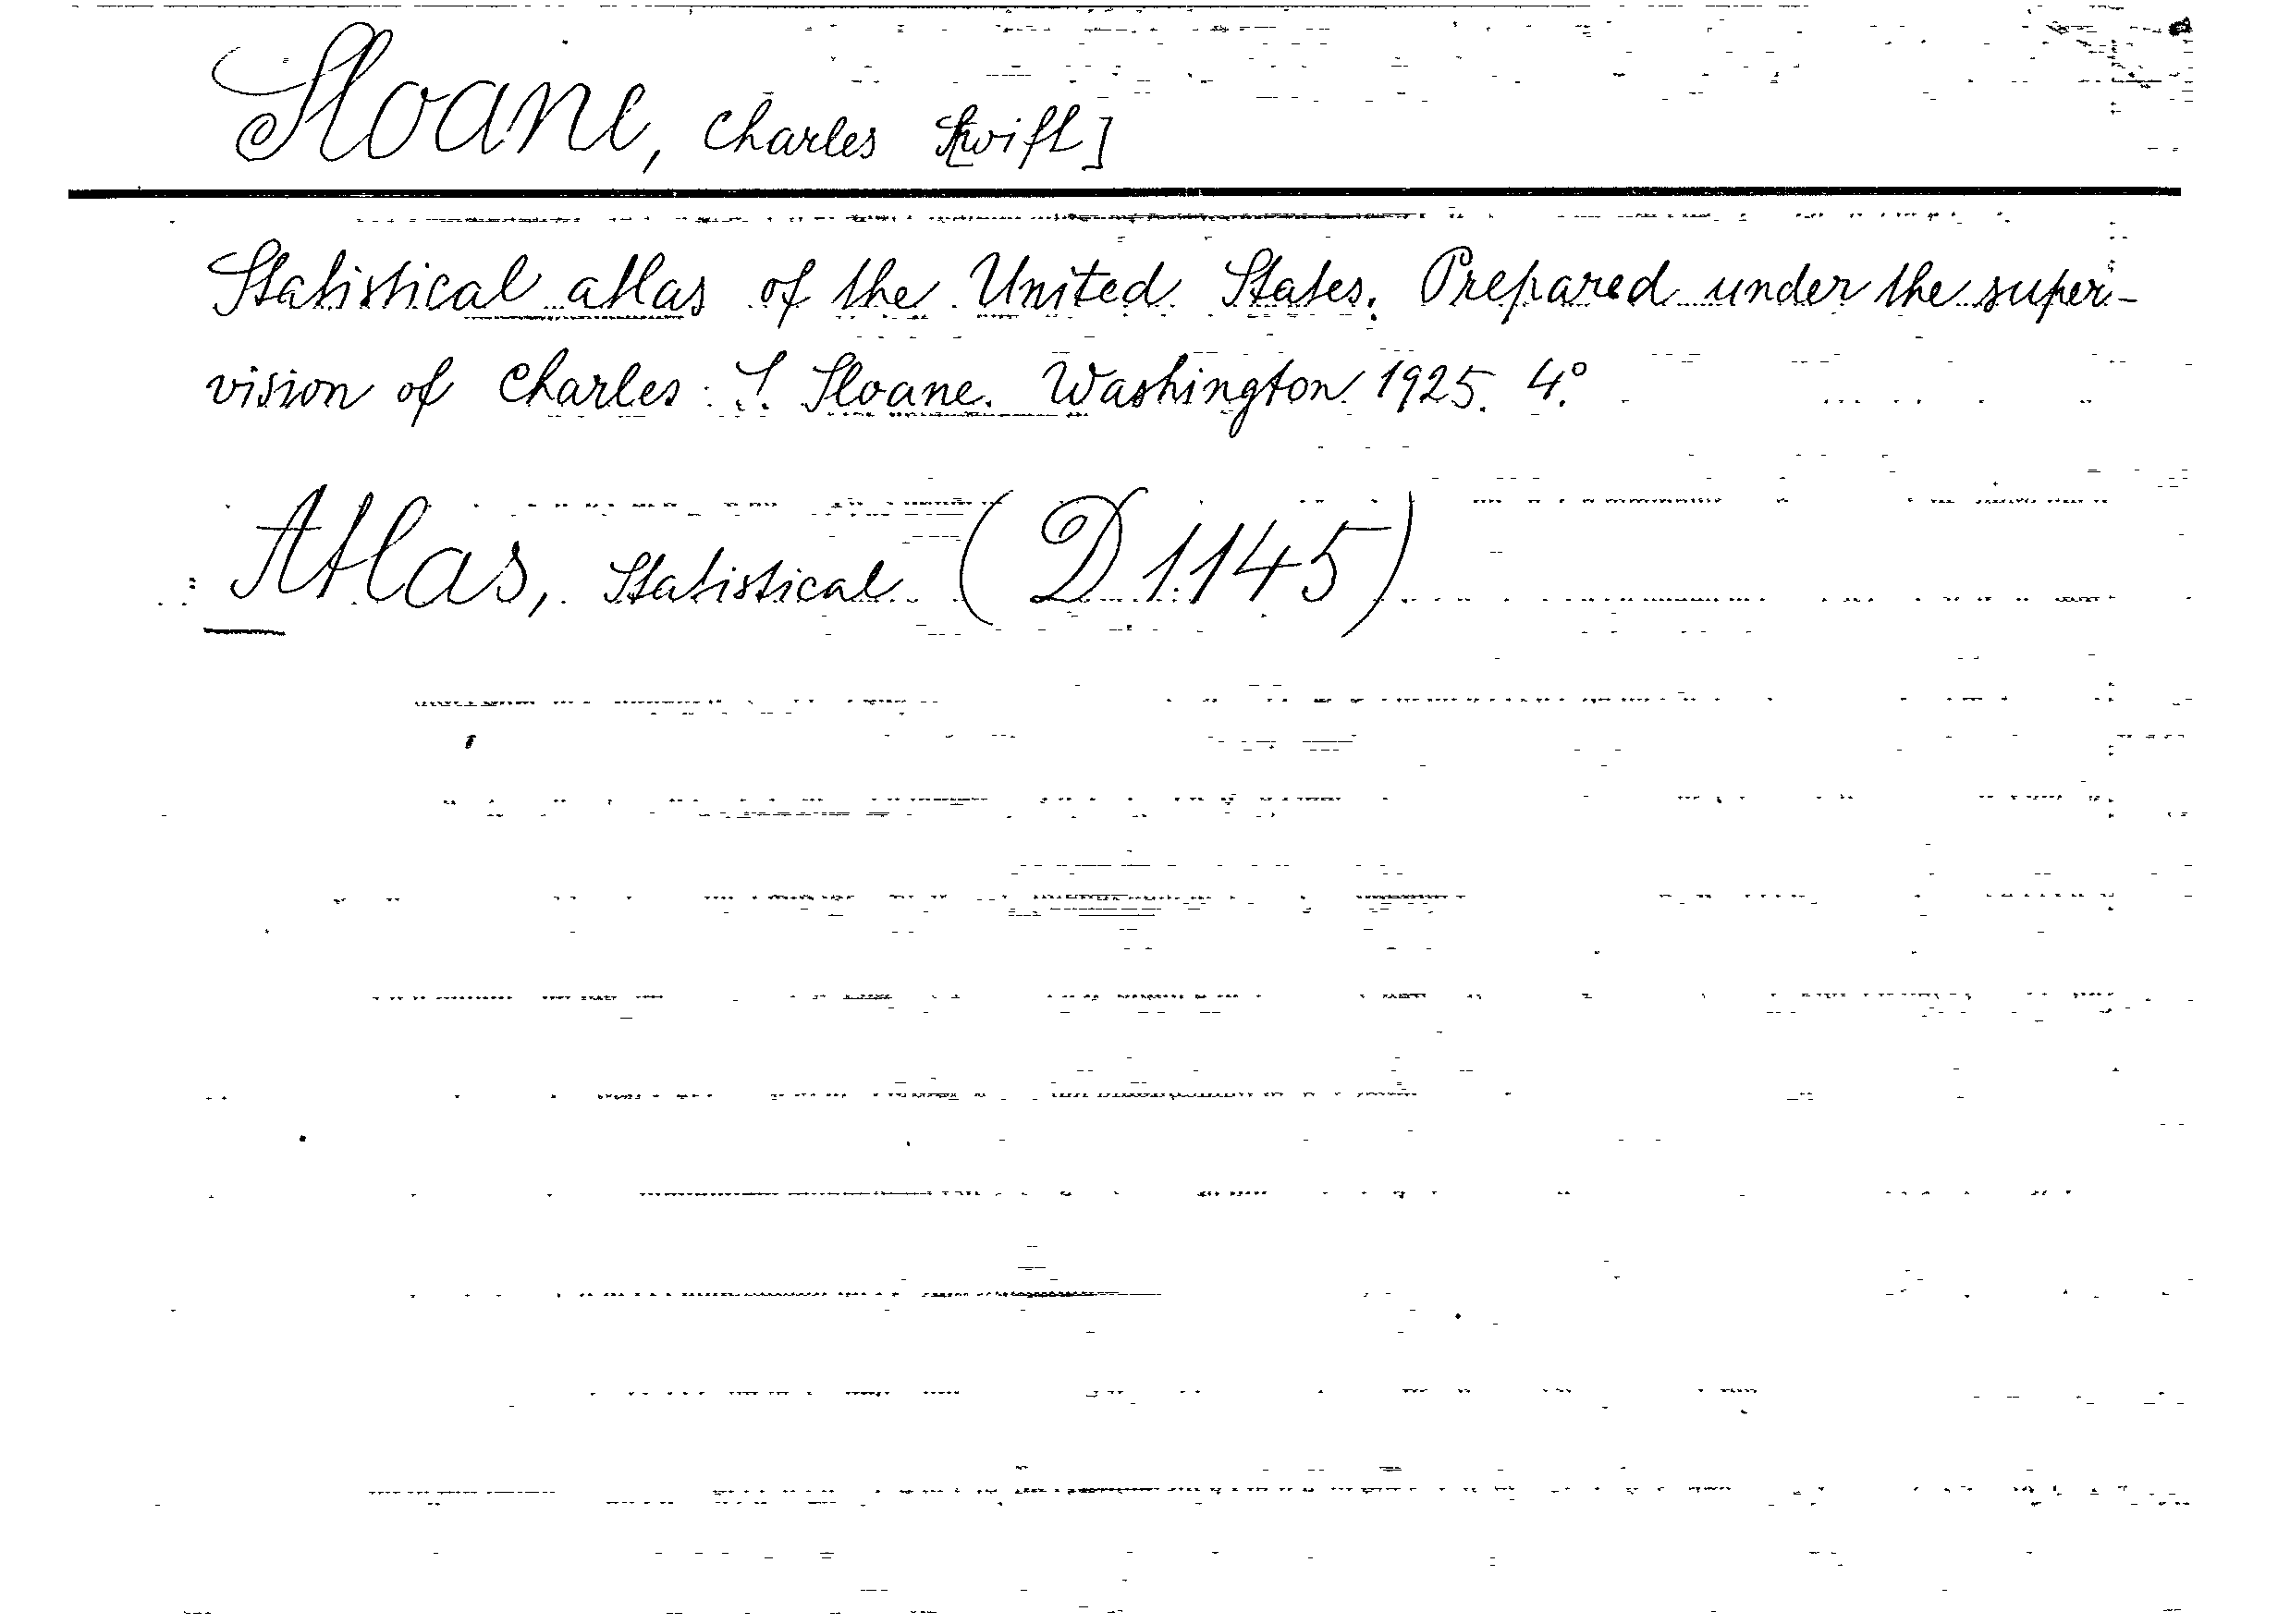 Sloane, Charles S[wift]
Statistical atlas of the United States. Prepared under the super-
vision of Charles S. Sloane. Washington 1925. 4°.
Atlas, Statistical (D 1.145)